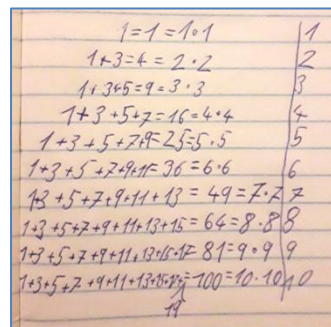 1=1=1·1 | 1
1+3=4=2·2 | 2
1+3+5=9=3·3 | 3
1+3+5+7=16=4·4 | 4
1+3+5+7+9=25=5·5 | 5
1+3+5+7+9+11=36=6·6 | 6
1+3+5+7+9+11+13=49=7·7 | 7
1+3+5+7+9+11+13+15=64=8·8 | 8
1+3+5+7+9+11+13+15+17=81=9·9 | 9
1+3+5+7+9+11+13+15+17+=100=10·10 | 10
19